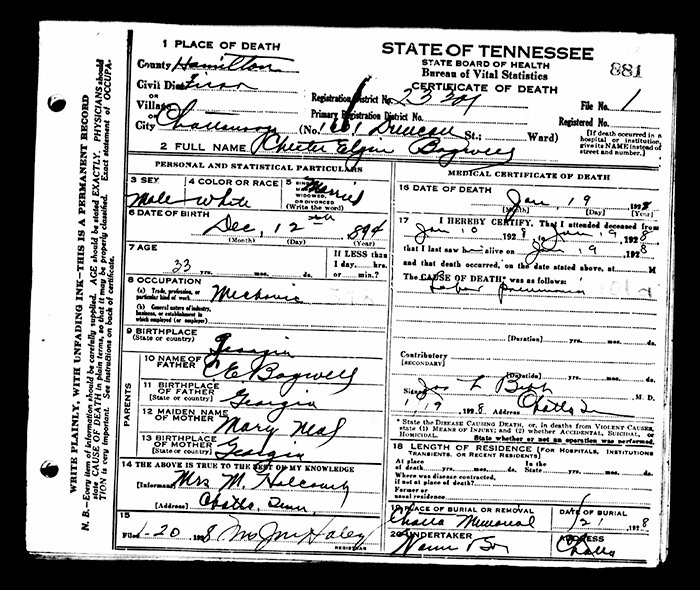 WRITE PLAINLY, WITH UNFADING INK—THIS IS A PERMANENT RECORD
N. B.—Every item of information should be carefully supplied. AGE should be stated EXACTLY. PHYSICIANS should
state CAUSE OF DEATH in plain terms, so that it may be properly classified. Exact statement of OCCUPA-
TION is very important. See instructions on back of certificate.
1 PLACE OF DEATH
County Hamilton
Civil Dis. First
OR
Village
OR
City Chattanooga (No. Duncan St.; Ward)
STATE OF TENNESSEE
STATE BOARD OF HEALTH
Bureau of Vital Statistics
CERTIFICATE OF DEATH
881
Registration District No.
File No. 1
Primary Registration District No.
Registered No.
[If death occurred in a
hospital or institution,
give its NAME instead of
street and number.]
2 FULL NAME Chester Elgin Bagwell
PERSONAL AND STATISTICAL PARTICULARS
3 SEX Male
4 COLOR OR RACE White
5 SINGLE, MARRIED, WIDOWED, OR DIVORCED (Write the word) Married
6 DATE OF BIRTH Dec, 12 894
(Month) (Day) (Year)
7 AGE
33 yrs. mos. ds.
If LESS than
1 day, hrs.
or min.?
8 OCCUPATION
(a) Trade, profession, or
particular kind of work Mechanic
(b) General nature of industry,
business, or establishment in
which employed (or employer)
9 BIRTHPLACE
(State or country) Georgia
PARENTS
10 NAME OF
FATHER C E Bagwell
11 BIRTHPLACE
OF FATHER
(State or country) Georgia
12 MAIDEN NAME
OF MOTHER Mary Neal
13 BIRTHPLACE
OF MOTHER
(State or country) Georgia
14 THE ABOVE IS TRUE TO THE BEST OF MY KNOWLEDGE
(Informant) Mrs M. Holcomb
(Address) Chatta. Tenn.
15
Filed 1-20 1928 Mrs Jno Haley
REGISTRAR
MEDICAL CERTIFICATE OF DEATH
16 DATE OF DEATH
Jan, 19 1928
(Month) (Day) (Year)
17 I HEREBY CERTIFY, That I attended deceased from
Jan 10 1928, to Jan, 19, 1928
that I last saw h alive on Jan 19, 1928
and that death occurred, on the date stated above, at M
The CAUSE OF DEATH was as follows:
Lobar pneumonia
(Duration) yrs. mos. ds.
Contributory
(SECONDARY)
(Duration) yrs. mos. ds.
Signed Jos L M. D.
1 9 1928 Address Chatta Tn
* State the DISEASE CAUSING DEATH, or, in deaths from VIOLENT CAUSES,
state (1) MEANS OF INJURY; and (2) whether ACCIDENTAL, SUICIDAL, or
HOMICIDAL. State whether or not an operation was performed.
18 LENGTH OF RESIDENCE (FOR HOSPITALS, INSTITUTIONS
TRANSIENTS, OR RECENT RESIDENTS)
At place of death yrs. mos. ds. In the State yrs. mos. ds.
Where was disease contracted,
if not at place of death?
Former or
usual residence
19 PLACE OF BURIAL OR REMOVAL
Chatta Memorial
DATE OF BURIAL
1/21 1928
20 UNDERTAKER
ADDRESS
Chatta